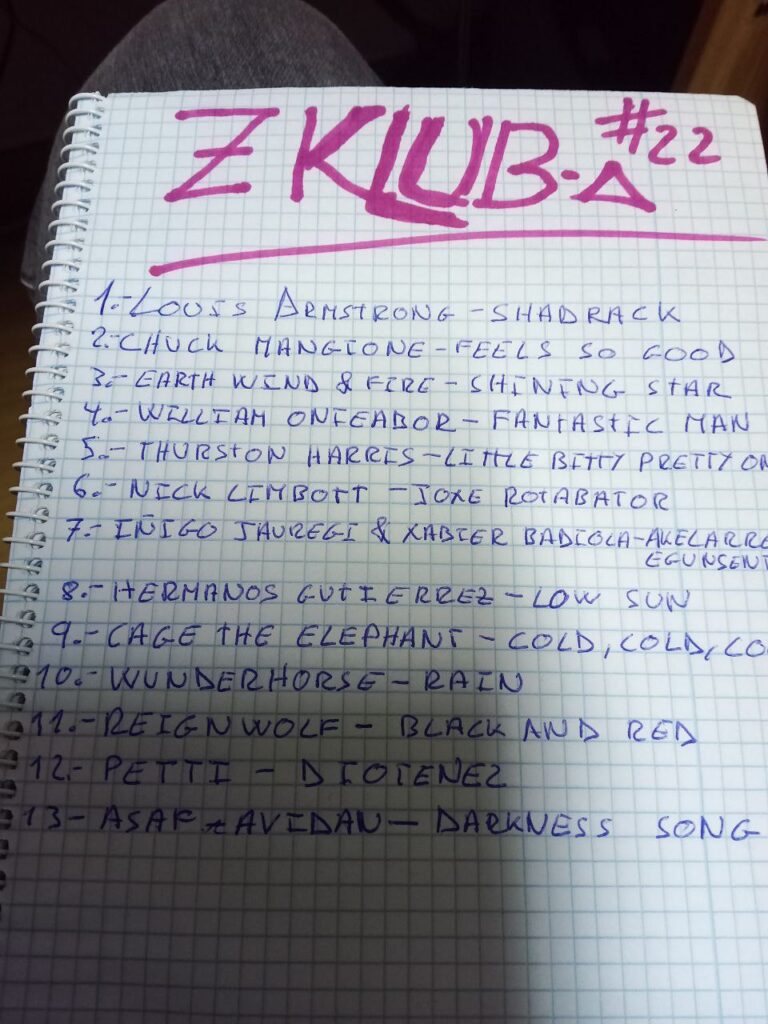 Z KLUB-A #22
1.- LOUIS ARMSTRONG - SHADRACK
2.- CHUCK MANGIONE - FEELS SO GOOD
3.- EARTH WIND & FIRE - SHINING STAR
4.- WILLIAM ONIEABOR - FANTASTIC MAN
5.- THURSTON HARRIS - LITTLE BITTY PRETTY ON
6.- NICK LIMBOTT - JOXE ROTABATOR
7.- IÑIGO JAUREGI & XABIER BADIOLA - AKELARRE
EGUNSENT
8.- HERMANOS GUTIERREZ - LOW SUN
9.- CAGE THE ELEPHANT - COLD, COLD, CO
10.- WUNDERHORSE - RAIN
11.- REIGNWOLF - BLACK AND RED
12.- PETTI - DIOTENEZ
13 - ASAF AVIDAN - DARKNESS SONG